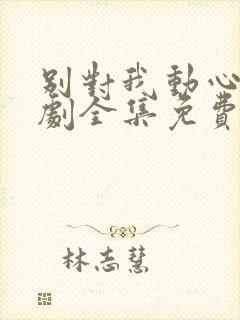 別對我動心
劇全集免費
林志慧